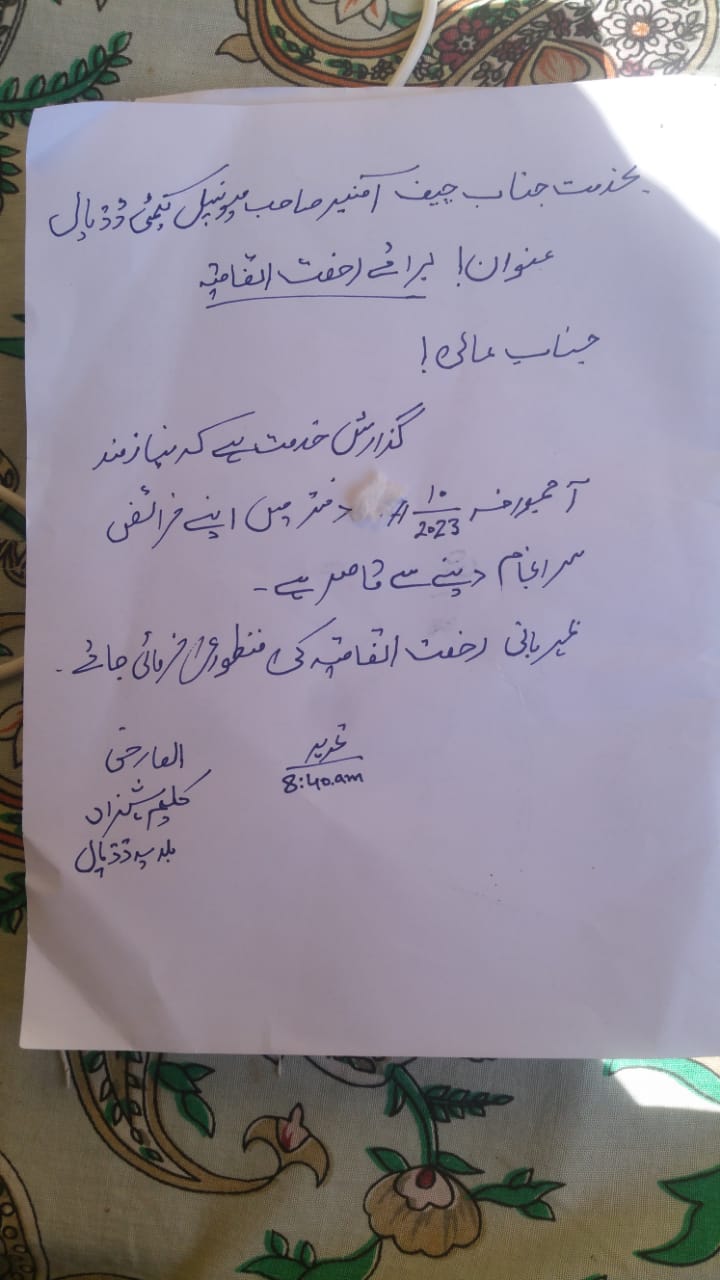 بخدمت جناب چیف آفیسر صاحب میونسپل کمیٹی ڈڈیال
عنوان! برائے رخصت اتفاقیہ
جناب عالی!
گذارش خدمت ہے کہ نیازمند
آج مورخہ 10/2023 دفتر میں اپنے فرائض
سرانجام دینے سے قاصر ہے۔
مہربانی رخصت اتفاقیہ کی منظوری فرمائی جائے۔
تحریر
8:40.am
العارض
کلیم شہزاد
بلدیہ ڈڈیال